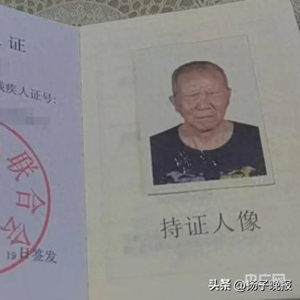 证
残疾人证号:
联合会
19日签发
持证人像
央广网
头条 @扬子晚报